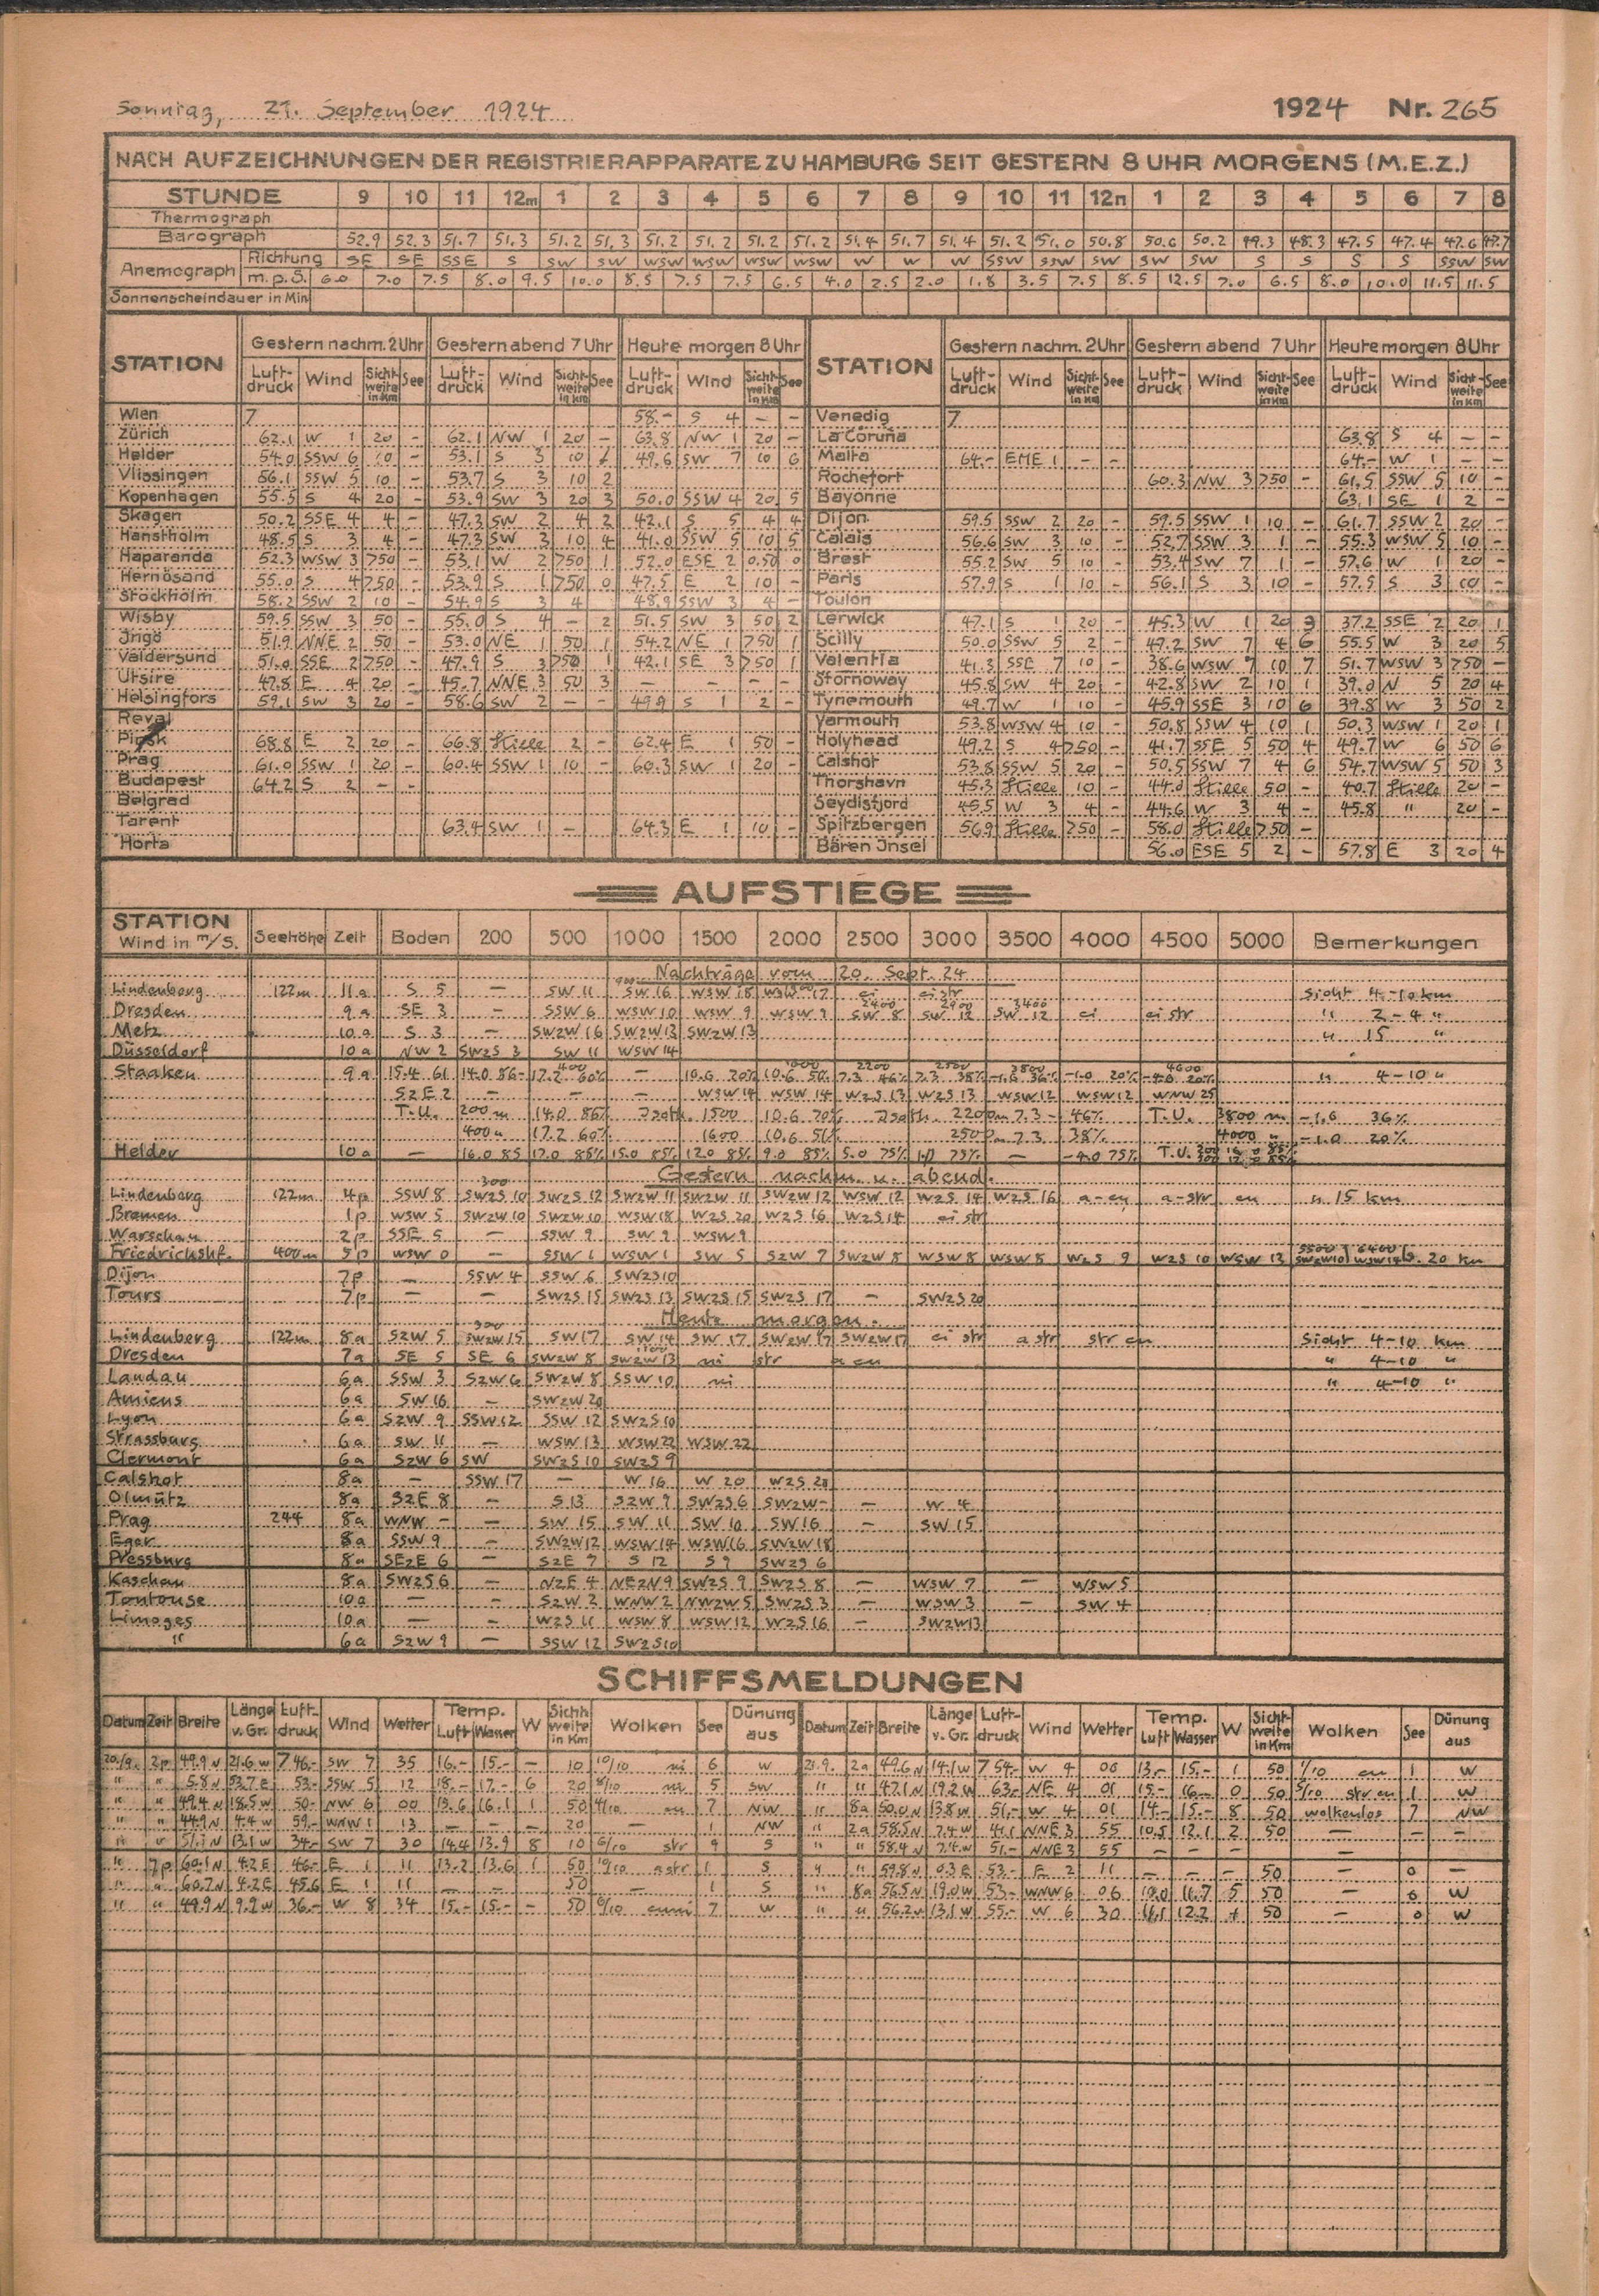 Sonntag, 21. September 1924
1924 Nr. 265
NACH AUFZEICHNUNGEN DER REGISTRIERAPPARATE ZU HAMBURG SEIT GESTERN 8 UHR MORGENS (M.E.Z.)
STUNDE 9 10 11 12m 1 2 3 4 5 6 7 8 9 10 11 12n 1 2 3 4 5 6 7 8
Thermograph
Barograph 52.9 52.3 51.7 51.3 51.2 51.3 51.2 51.2 51.2 51.2 51.4 51.7 51.4 51.2 51.0 50.8 50.6 50.2 49.3 48.3 47.5 47.4 47.6 47.7
Anemograph Richtung SE SE SSE S SW SW WSW WSW WSW WSW W W W SSW SSW SW SW SW S S S S SSW SW
m.p.S. 6.0 7.0 7.5 8.0 9.5 10.0 8.5 7.5 7.5 6.5 4.0 2.5 2.0 1.8 3.5 7.5 8.5 12.5 7.0 6.5 8.0 10.0 11.5 11.5
Sonnenscheindauer in Min
STATION Gestern nachm. 2 Uhr Gestern abend 7 Uhr Heute morgen 8 Uhr STATION Gestern nachm. 2 Uhr Gestern abend 7 Uhr Heute morgen 8 Uhr
Luft-druck Wind Sicht-weite in Km See Luft-druck Wind Sicht-weite in Km See Luft-druck Wind Sicht-weite in Km See Luft-druck Wind Sicht-weite in Km See Luft-druck Wind Sicht-weite in Km See Luft-druck Wind Sicht-weite in Km See
Wien 7 58.- S 4 - - Venedig 7
Zürich 62.1 W 1 20 - 62.1 NW 1 20 - 63.8 NW 1 20 - La Coruña 63.8 S 4 - -
Helder 54.0 SSW 6 10 - 53.1 S 3 10 49.6 SW 7 10 6 Malta 64.- EME 1 - - 64.- W 1 - -
Vlissingen 56.1 SSW 5 10 - 53.7 S 3 10 2 Rochefort 60.3 NW 3 >50 - 61.5 SSW 5 10 -
Kopenhagen 55.5 S 4 20 - 53.9 SW 3 20 3 50.0 SSW 4 20 5 Bayonne 63.1 SE 1 2 -
Skagen 50.2 SSE 4 4 - 47.3 SW 2 4 2 42.1 S 5 4 4 Dijon 59.5 SSW 2 20 - 59.5 SSW 1 10 - 61.7 SSW 2 20 -
Hanstholm 48.5 S 3 4 - 47.3 SW 3 10 4 41.0 SSW 5 10 5 Calais 56.6 SW 3 10 - 52.7 SSW 3 1 - 55.3 WSW 5 10 -
Haparanda 52.3 WSW 3 >50 - 53.1 W 2 >50 1 52.0 ESE 2 0.50 0 Brest 55.2 SW 5 10 - 53.4 SW 7 1 - 57.6 W 1 20 -
Hernösand 55.0 S 4 >50 - 53.9 S 1 >50 0 47.5 E 2 10 - Paris 57.9 S 1 10 - 56.1 S 3 10 - 57.5 S 3 10 -
Stockholm 58.2 SSW 2 10 - 54.9 S 3 4 48.9 SSW 3 4 - Toulon
Wisby 59.5 SSW 3 50 - 55.0 S 4 - 2 51.5 SW 3 50 2 Lerwick 47.1 S 1 20 - 45.3 W 1 20 3 37.2 SSE 2 20 1
Ingö 51.9 NNE 2 50 - 53.0 NE 1 50 1 54.2 NE 1 >50 1 Scilly 50.0 SSW 5 2 - 49.2 SW 7 4 6 55.5 W 3 20 5
Valdersund 51.0 SSE 2 >50 - 47.9 S 3 >50 1 42.1 SE 3 >50 1 Valentia 41.3 SSE 7 10 - 38.6 WSW 7 10 7 51.7 WSW 3 >50 -
Utsire 47.8 E 4 20 - 45.7 NNE 3 50 3 - - - - Stornoway 45.8 SW 4 20 - 42.8 SW 2 10 1 39.0 N 5 20 4
Helsingfors 59.1 SW 3 20 - 58.6 SW 2 - - 49.9 S 1 2 - Tynemouth 49.7 W 1 10 - 45.9 SSE 3 10 6 39.8 W 3 50 2
Reval Yarmouth 53.8 WSW 4 10 - 50.8 SSW 4 10 1 50.3 WSW 1 20 1
Pinsk 68.8 E 2 20 - 66.8 Stille 2 - 62.4 E 1 50 - Holyhead 49.2 S 4 >50 - 41.7 SSE 5 50 4 49.7 W 6 50 6
Prag 61.0 SSW 1 20 - 60.4 SSW 1 10 - 60.3 SW 1 20 - Calshot 53.8 SSW 5 20 - 50.5 SSW 7 4 6 54.7 WSW 5 50 3
Budapest 64.2 S 2 - - Thorshavn 45.3 Stille 10 - 44.0 Stille 50 - 40.7 Stille 20 -
Belgrad Seydisfjord 45.5 W 3 4 - 44.6 W 3 4 - 45.8 " 20 -
Tarent 63.4 SW 1 - 64.3 E 1 10 - Spitzbergen 56.9 Stille >50 - 58.0 Stille >50 -
Horta Bären Insel 56.0 ESE 5 2 - 57.8 E 3 20 4
AUFSTIEGE
STATION Wind in m/S. Seehöhe Zeit Boden 200 500 1000 1500 2000 2500 3000 3500 4000 4500 5000 Bemerkungen
Nachträge vom 20. Sept. 24
Lindenberg 122m 11a S 5 - SW 11 900 SW 16 WSW 18 17 ci ci str Sicht 4-10 km
Dresden 9a SE 3 - SSW 6 WSW 10 WSW 9 WSW 9 2400 SW 8 2900 SW 12 3400 SW 12 ci ci str " 2-4 "
Metz 10a S 3 - SWzW 16 SWzW 13 SWzW 13 " 15 "
Düsseldorf 10a NW 2 SWzS 3 SW 11 WSW 14
Staaken 9a 15.4 61 14.0 86- 400 17.2 60% - 10.6 70% 10.6 50% 2200 7.3 46% 2500 7.3 38% 3800 -1.6 36% -1.0 20% 4600 20% " 4-10 "
SzE 2 - - - WSW 14 WSW 14 WzS 13 WzS 13 WSW 12 WSW 12 WNW 25
T.U. 200 m 14.0 86% Isoth. 1500 10.6 70% Isoth. 2200 m 7.3 - 46% T.U. 3800 m -1.6 36%
400 " 17.2 60% 1600 10.6 2500 m 7.3 38% 4000 " -1.0 20%
Helder 10a - 16.0 85 17.0 85% 15.0 85% 12.0 85% 9.0 85% 5.0 75% 75% - -4.0 75% T.U.
Gestern nachm. u. abend.
Lindenberg 122m 4p SSW 8 300 SWzS 10 SWzS 12 SWzW 11 SWzW 11 SWzW 12 WSW 12 WzS 14 WzS 16 a-cu a-str cu " 15 km
Bremen 1p WSW 5 SWzW 10 SWzW 10 WSW 18 WzS 20 WzS 16 WzS 14 ci str
Warschau 2p SSE 5 - SSW 9 SW 9 WSW 9
Friedrichshf. 400m 5p WSW 0 - SSW 1 WSW 1 SW 5 SzW 7 SWzW 8 WSW 8 WSW 8 WzS 9 WzS 10 WSW 12 5500 SWzW10 6400 WSW14 S. 20 km
Dijon 7p - SSW 4 SSW 6 SWzS 10
Tours 7p - - SWzS 15 SWzS 13 SWzS 15 SWzS 17 - SWzS 20
Heute morgen.
Lindenberg 122m 8a SzW 5 300 SWzW 15 SW 17 SW 14 SW 17 SWzW 17 SWzW 17 ci str a str str cu Sicht 4-10 km
Dresden 7a SE 5 SE 6 SWzW 8 SWzW 13 ni str a cu " 4-10 "
Landau 6a SSW 3 SzW 6 SWzW 8 SSW 10 ni " 4-10 "
Amiens 6a SW 16 - SWzW 20
Lyon 6a SzW 9 SSW 12 SSW 12 SWzS 10
Strassburg 6a SW 11 - WSW 13 WSW 22 WSW 22
Clermont 6a SzW 6 SW SWzS 10 SWzS 9
Calshot 8a - SSW 17 - W 16 W 20 WzS 20
Olmütz 8a SzE 8 - S 13 SzW 9 SWzS 6 SWzW - - W 4
Prag 244 8a WNW - - SW 15 SW 11 SW 10 SW 16 - SW 15
Eger 8a SSW 9 SWzW 12 WSW 14 WSW 16 SWzW 18
Pressburg 8a SEzE 6 - SzE 7 S 12 S 9 SWzS 6
Kaschau 8a SWzS 6 - NzE 4 NEzN 9 SWzS 9 SWzS 8 - WSW 7 - WSW 5
Toulouse 10a - - SzW 2 WNW 2 NWzW 5 SWzS 3 - WSW 3 - SW 4
Limoges 10a - - WzS 11 WSW 8 WSW 12 WzS 16 - SWzW 13
" 6a SzW 9 - SSW 12 SWzS 10
SCHIFFSMELDUNGEN
Datum Zeit Breite Länge v. Gr. Luft-druck Wind Wetter Temp. Luft Wasser W Sicht-weite in Km Wolken See Dünung aus Datum Zeit Breite Länge v. Gr. Luft-druck Wind Wetter Temp. Luft Wasser W Sicht-weite in Km Wolken See Dünung aus
20./9. 2p 49.9 N 21.6 W 746.- SW 7 35 16.- 15.- - 10 10/10 ni 6 W 21.9. 2a 49.6 N 14.1 W 754.- W 4 00 13.- 15.- 1 50 1/10 cu 1 W
" " 5.8 N 53.7 E 53.- SSW 5 12 18.- 17.- 6 20 8/10 ni 5 SW " " 47.1 N 19.2 W 63.- NE 4 01 15.- 16.- 0 50 5/10 str cu 1 W
" " 49.4 N 18.5 W 50.- NW 6 00 13.6 16.1 1 50 4/10 cu 7 NW " 8a 50.0 N 13.8 W 51.- W 4 01 14.- 15.- 8 50 wolkenlos 7 NW
" " 44.9 N 4.4 W 59.- WNW 1 13 - - - 20 - 1 NW " 2a 58.5 N 7.4 W 41.1 NNE 3 55 10.5 12.1 2 50 - - -
" " 51.1 N 13.1 W 34.- SW 7 30 14.4 13.9 8 10 6/10 str 9 S " " 58.4 N 7.4 W 51.- NNE 3 55 - - - -
" 7p 60.1 N 4.2 E 46.- E 1 11 13.2 13.6 1 50 10/10 a str 1 S " " 59.8 N 0.3 E 53.- E 2 11 - - - 50 - 0 -
" " 60.7 N 4.2 E 45.6 E 1 11 - - 50 - 1 S " 8a 56.5 N 19.0 W 53.- WNW 6 06 10.0 11.7 5 50 - 6 W
" " 49.9 N 9.9 W 36.- W 8 34 15.- 15.- - 50 6/10 cum 7 W " " 56.2 N 13.1 W 55.- W 6 30 11.1 12.2 4 50 - 0 W